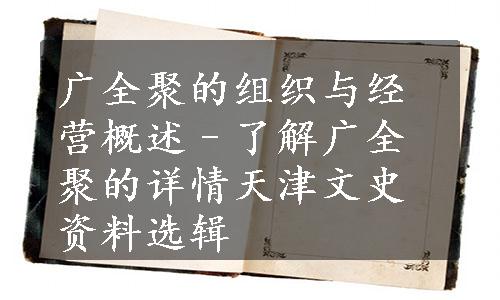 广全聚的组织与经
营概述-了解广全
聚的详情天津文史
资料选辑